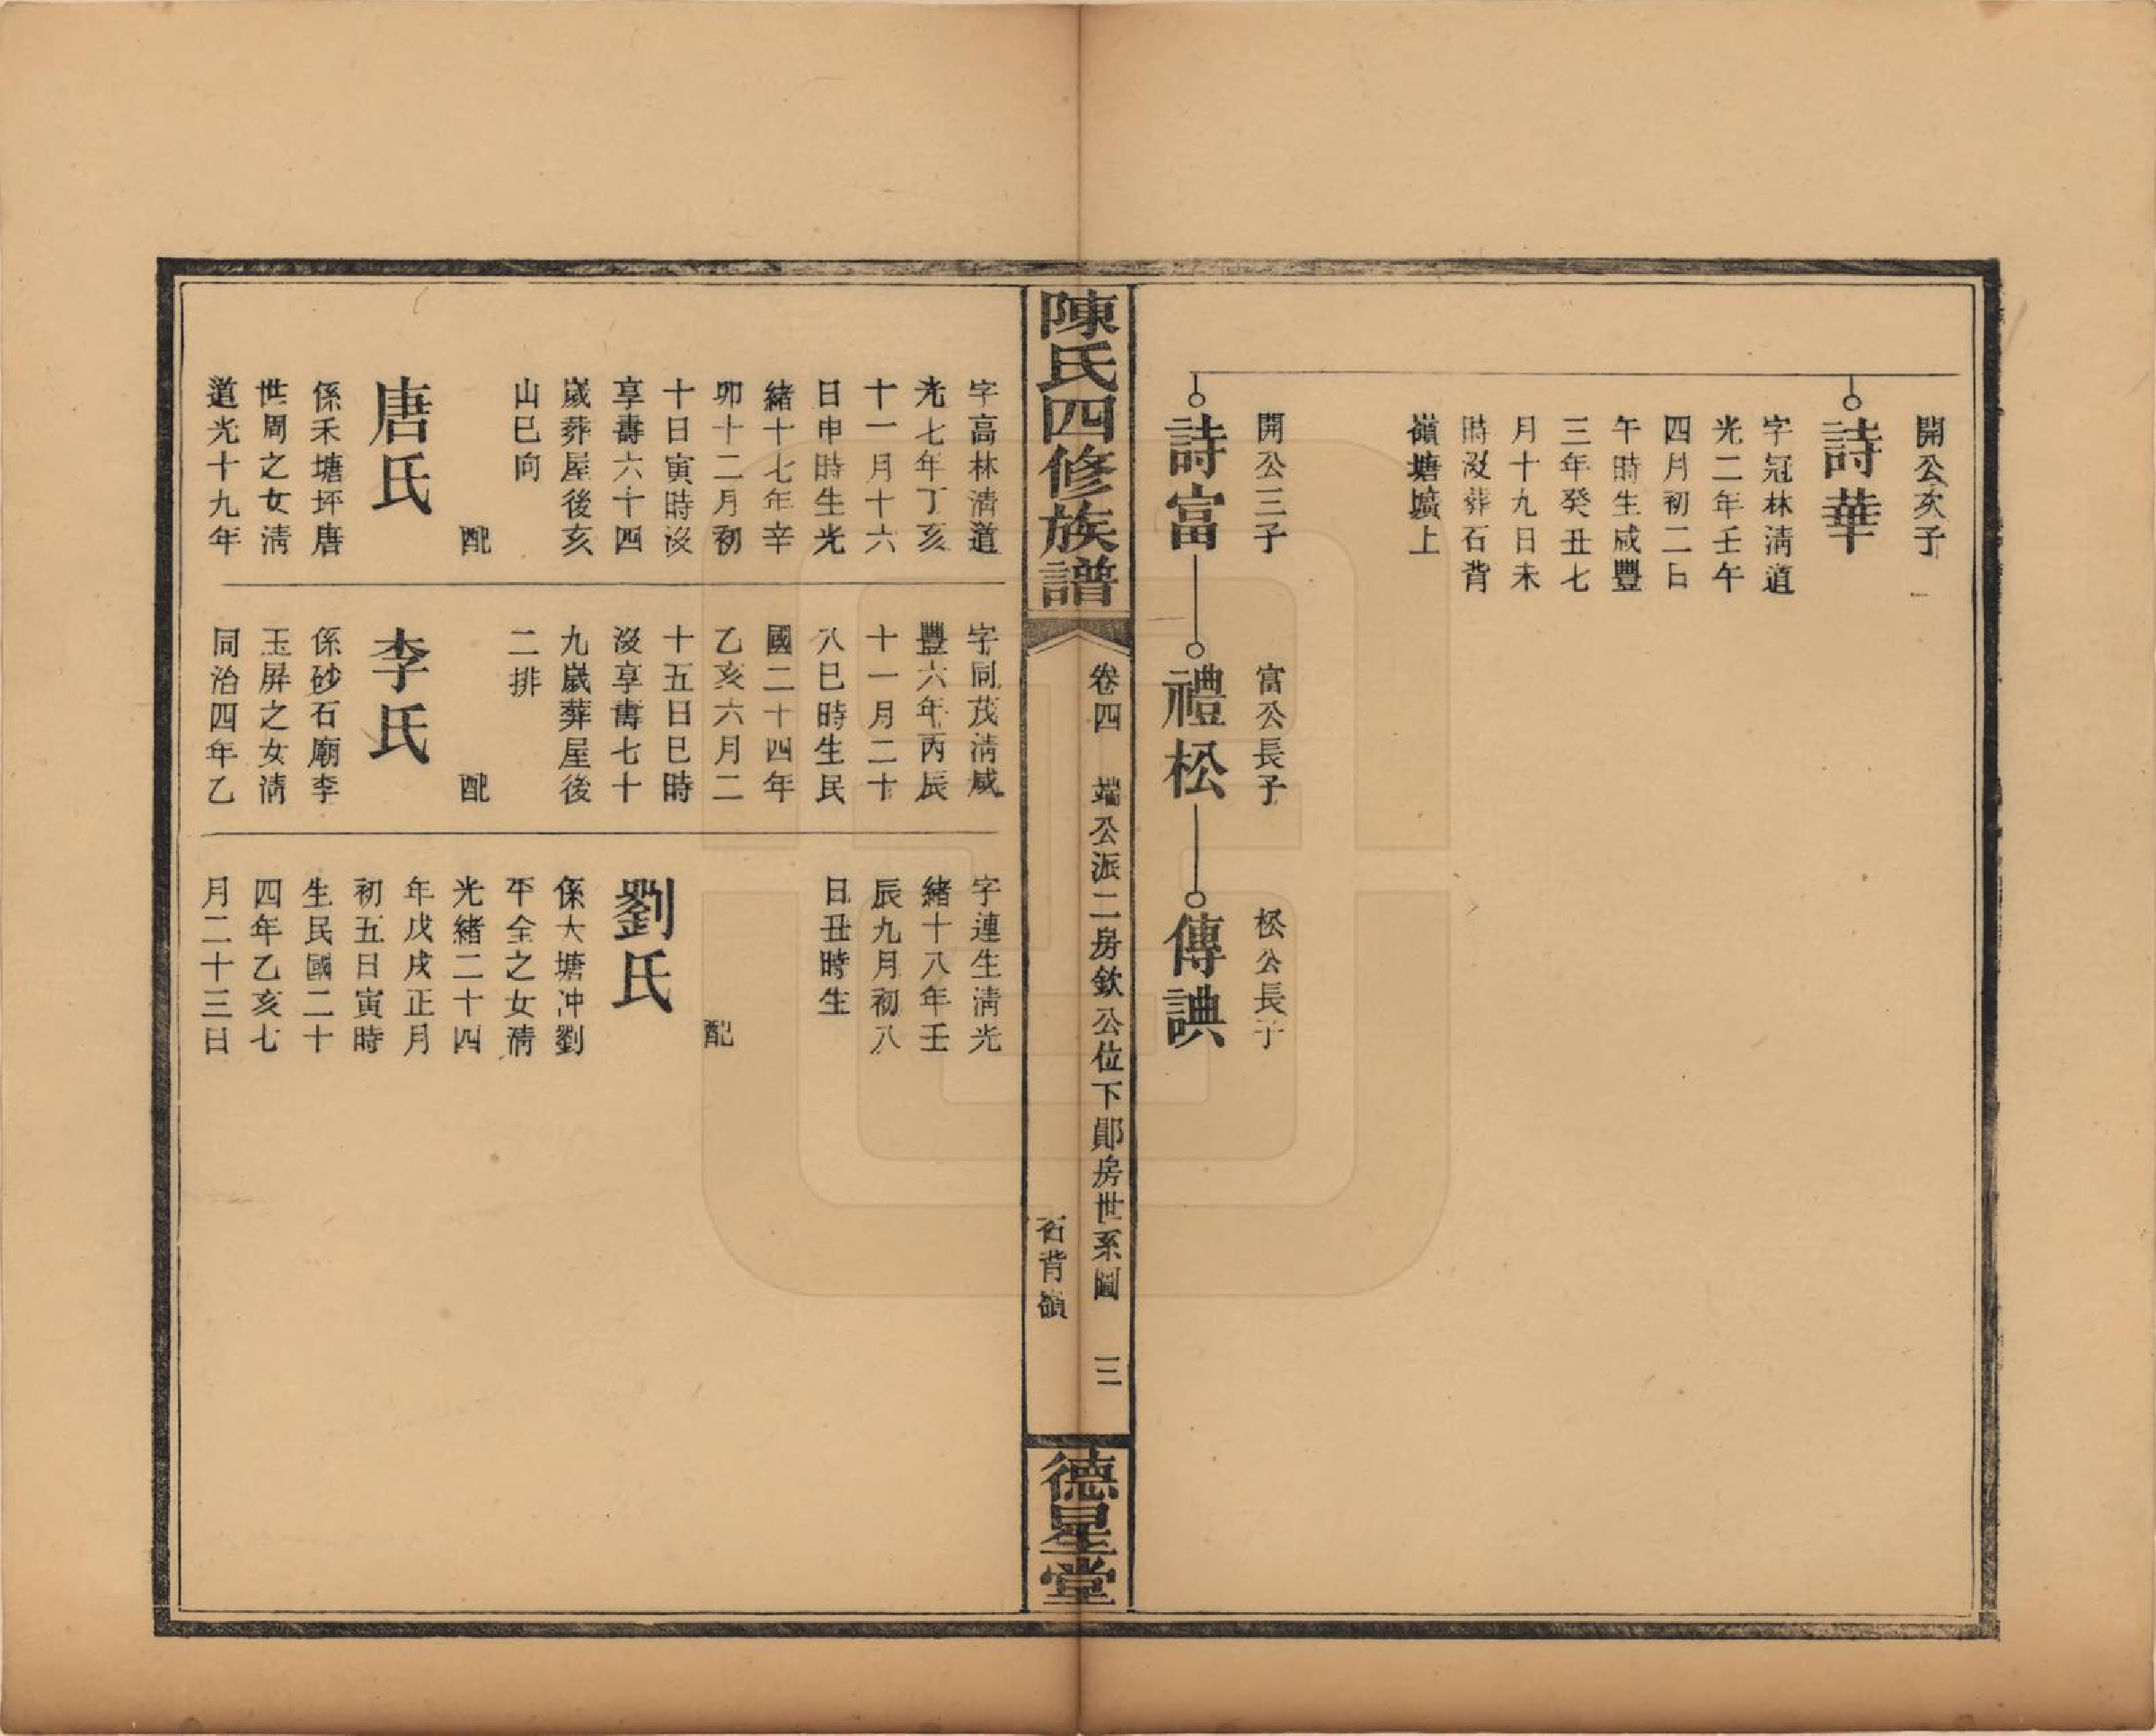 開公次子
詩華
字冠林清道
光二年壬午
四月初二日
午時生咸豐
三年癸丑七
月十九日未
時沒葬石背
嶺塘壙上
開公三子
詩富
富公長子
禮松
松公長子
傳䛑
陳氏四修族譜
卷四 端公派二房欽公位下鄖房世系圖 三
石背嶺
德星堂
字高林清道
光七年丁亥
十一月十六
日申時生光
緒十七年辛
卯十二月初
十日寅時沒
享壽六十四
歲葬屋後亥
山巳向
配
唐氏
係禾塘坪唐
世周之女清
道光十九年
字同茂清咸
豐六年丙辰
十一月二十
八巳時生民
國二十四年
乙亥六月二
十五日巳時
沒享壽七十
九歲葬屋後
二排
配
李氏
係砂石廟李
玉屏之女清
同治四年乙
字連生清光
緒十八年壬
辰九月初八
日丑時生
配
劉氏
係大塘冲劉
平全之女清
光緒二十四
年戊戌正月
初五日寅時
生民國二十
四年乙亥七
月二十三日